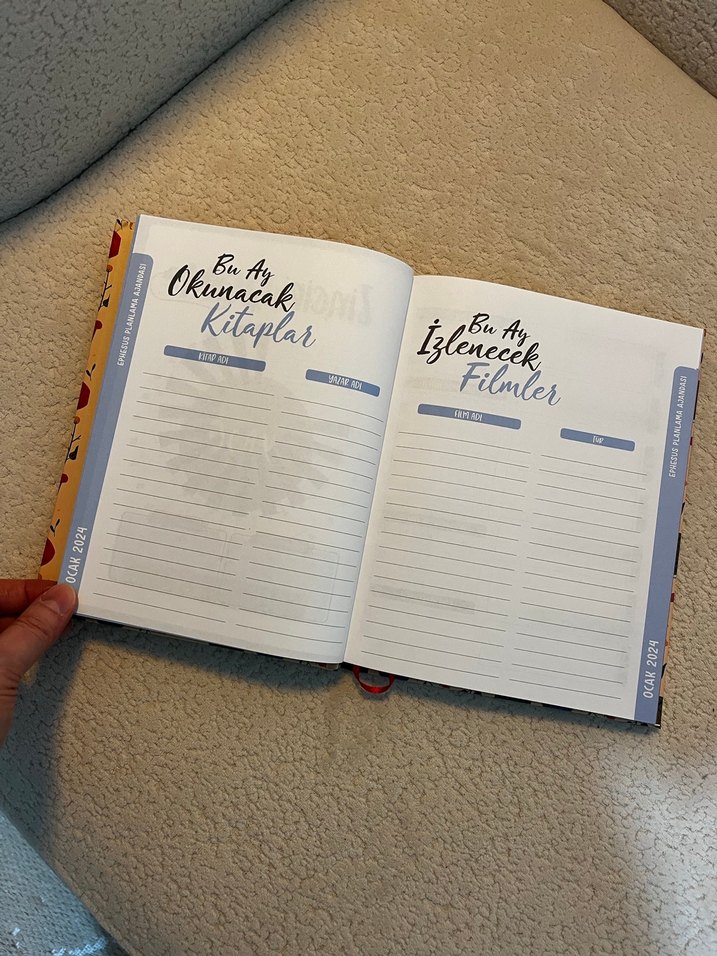 Bu Ay
Okunacak
Kitaplar
KİTAP ADI
YAZAR ADI
EPHESUS PLANLAMA AJANDASI
OCAK 2024
Bu Ay
İzlenecek
Filmler
FİLM ADI
TÜR
EPHESUS PLANLAMA AJANDASI
OCAK 2024